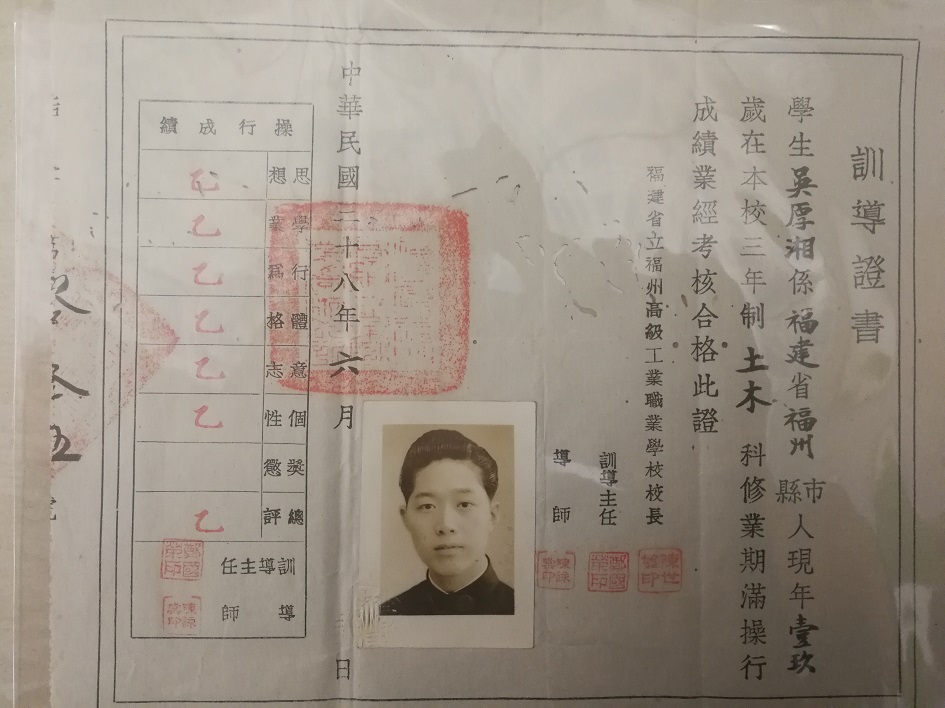 訓導證書
學生吳厚湘係福建省福州市縣人現年壹玖
歲在本校三年制土木科修業期滿操行
成績業經考核合格此證
福建省立福州高級工業職業學校校長
訓導主任
導師
中華民國二十八年六月 日
操行成績
思想
學業 乙
行為 乙
體格 乙
意志 乙
個性 乙
獎懲
總評 乙
訓導主任
導師